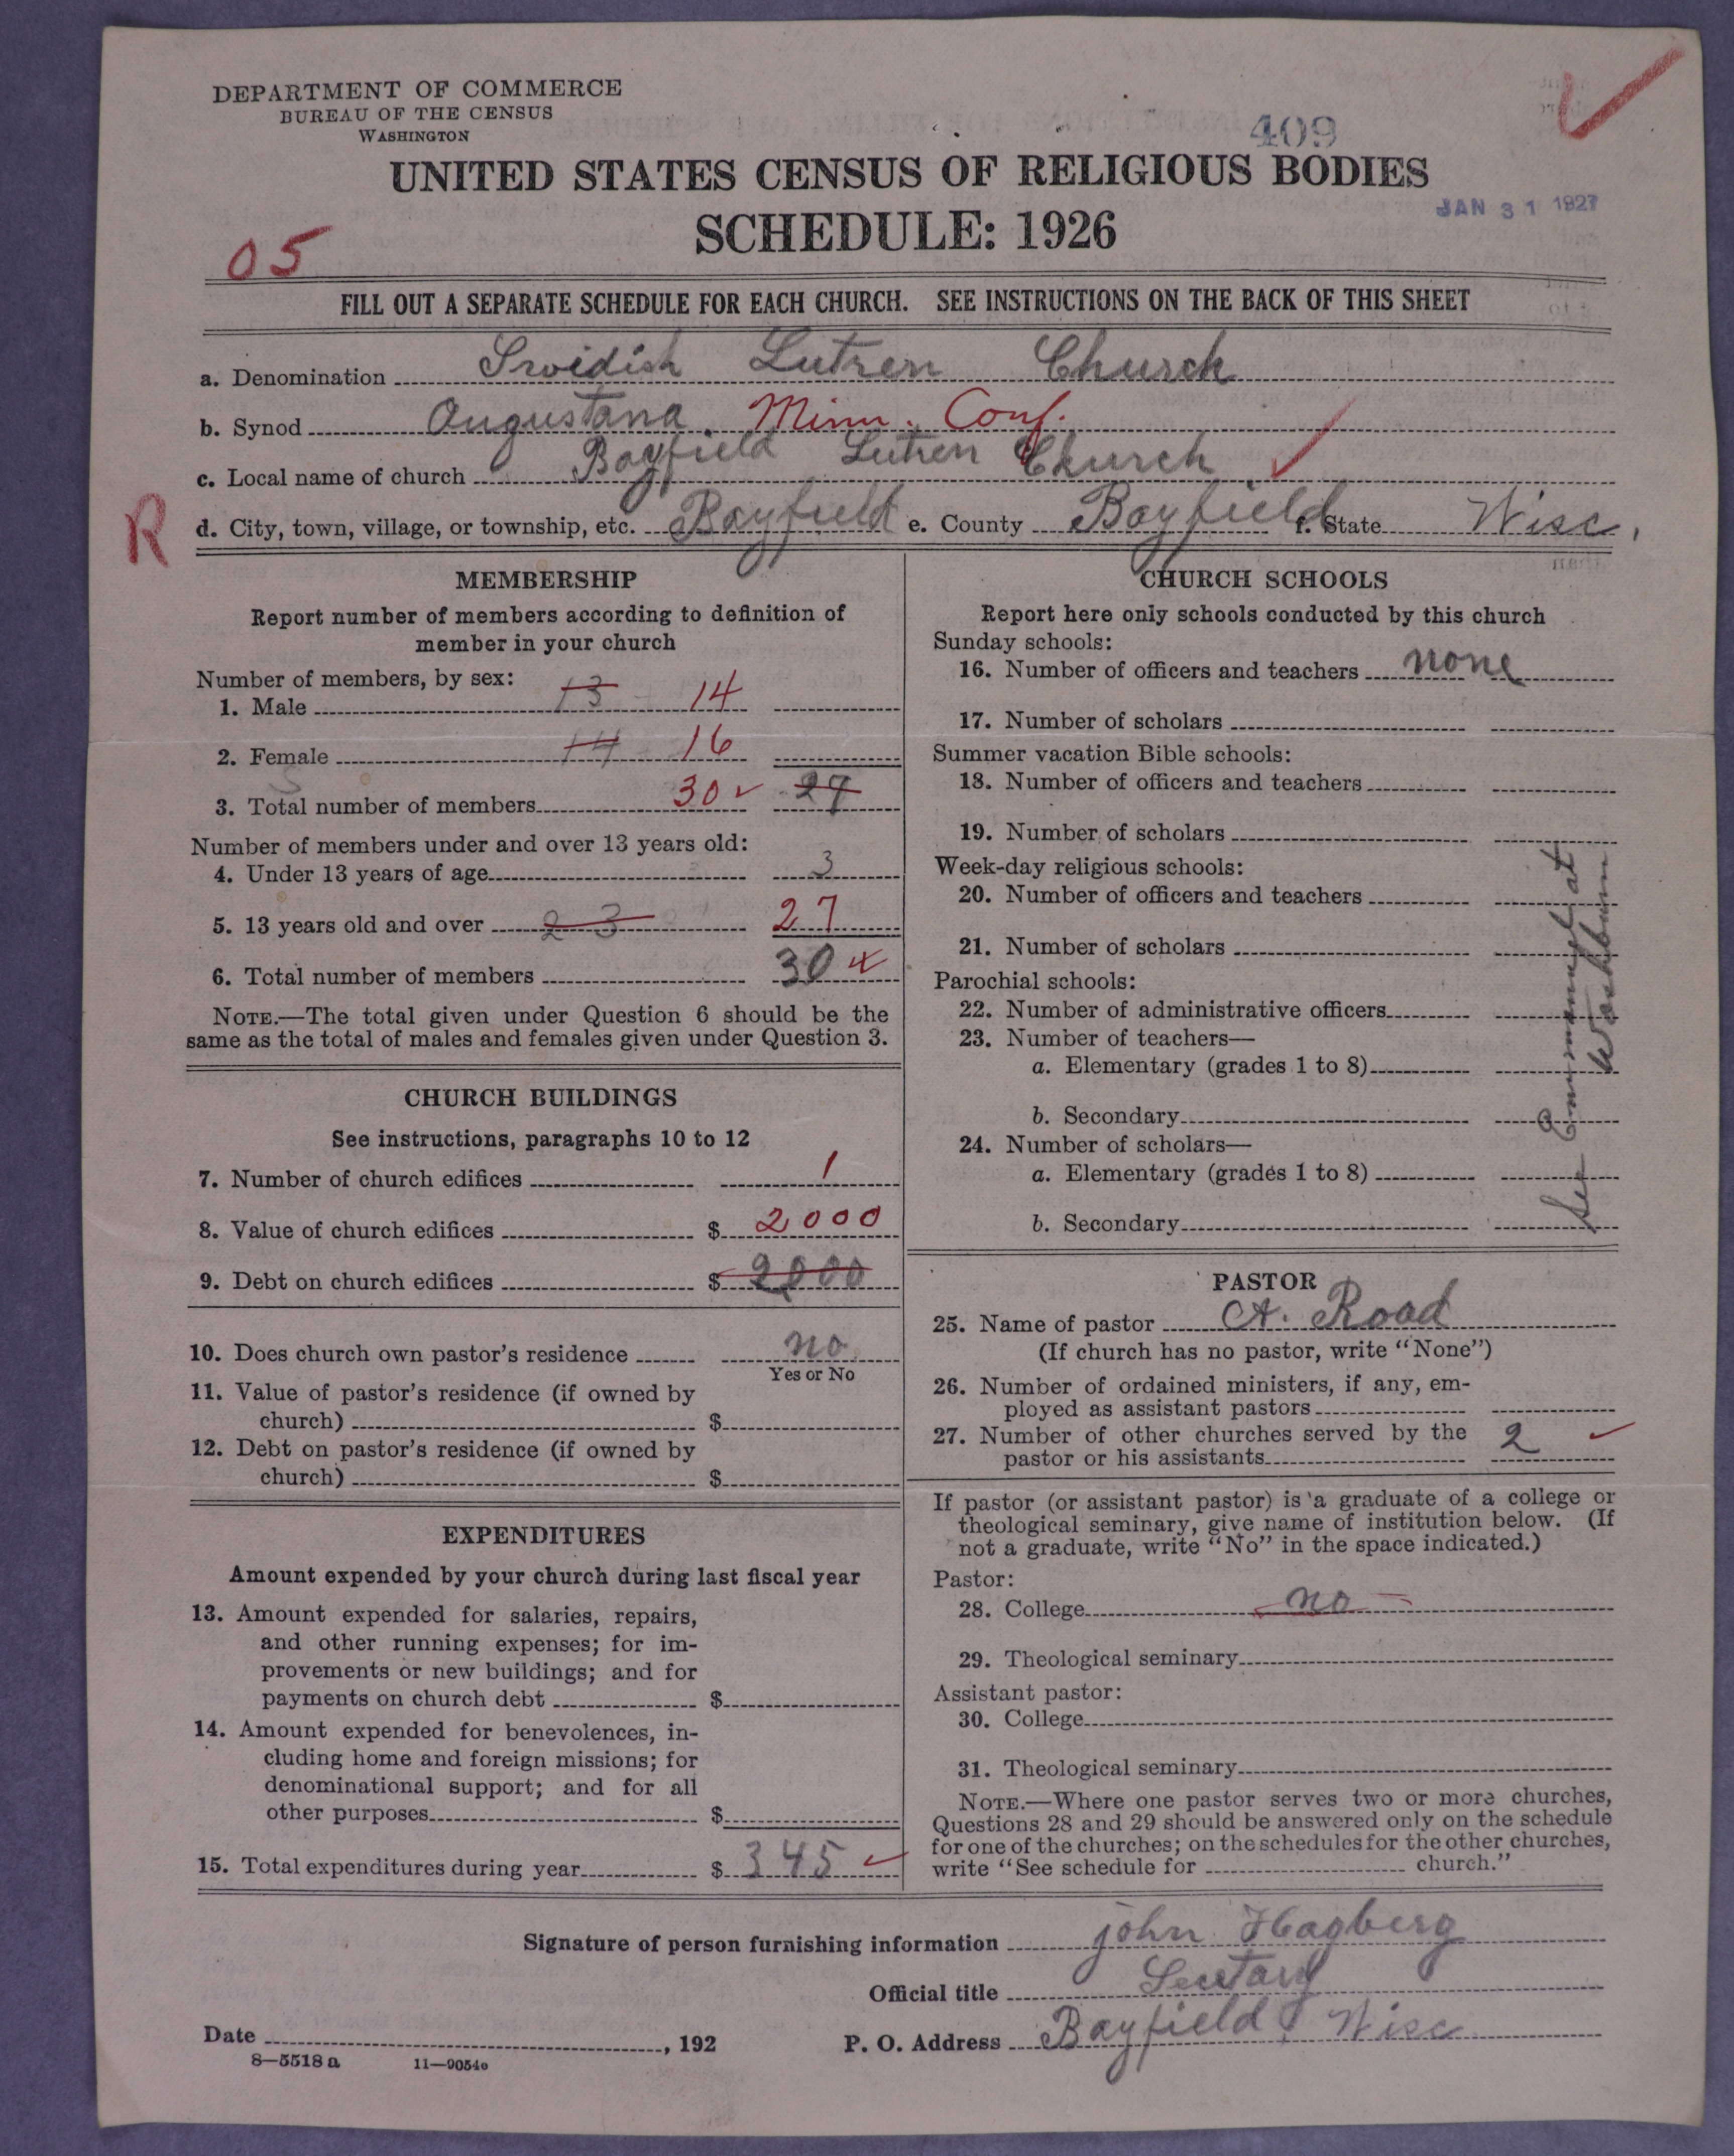 DEPARTMENT OF COMMERCE
BUREAU OF THE CENSUS
WASHINGTON
409
UNITED STATES CENSUS OF RELIGIOUS BODIES
JAN 31 1927
SCHEDULE: 1926
05
FILL OUT A SEPARATE SCHEDULE FOR EACH CHURCH. SEE INSTRUCTIONS ON THE BACK OF THIS SHEET
a. Denomination Swidish Lutren Church
b. Synod Augustana Minn. Conf.
c. Local name of church Bayfield Lutren Church
R
d. City, town, village, or township, etc. Bayfield e. County Bayfield f. State Wisc.
MEMBERSHIP
Report number of members according to definition of
member in your church
Number of members, by sex:
1. Male 13 14
2. Female 14 16
3. Total number of members 30 27
Number of members under and over 13 years old:
4. Under 13 years of age 3
5. 13 years old and over 23 27
6. Total number of members 30
NOTE.—The total given under Question 6 should be the
same as the total of males and females given under Question 3.
CHURCH BUILDINGS
See instructions, paragraphs 10 to 12
7. Number of church edifices 1
8. Value of church edifices $ 2000
9. Debt on church edifices $ 2000
10. Does church own pastor's residence no
Yes or No
11. Value of pastor's residence (if owned by
church) $
12. Debt on pastor's residence (if owned by
church) $
EXPENDITURES
Amount expended by your church during last fiscal year
13. Amount expended for salaries, repairs,
and other running expenses; for im-
provements or new buildings; and for
payments on church debt $
14. Amount expended for benevolences, in-
cluding home and foreign missions; for
denominational support; and for all
other purposes $
15. Total expenditures during year $ 345
CHURCH SCHOOLS
Report here only schools conducted by this church
Sunday schools:
16. Number of officers and teachers none
17. Number of scholars
Summer vacation Bible schools:
18. Number of officers and teachers
19. Number of scholars
Week-day religious schools:
20. Number of officers and teachers
21. Number of scholars
Parochial schools:
22. Number of administrative officers
23. Number of teachers—
a. Elementary (grades 1 to 8)
b. Secondary
24. Number of scholars—
a. Elementary (grades 1 to 8)
b. Secondary
See at
Washburn
PASTOR
25. Name of pastor A. Road
(If church has no pastor, write "None")
26. Number of ordained ministers, if any, em-
ployed as assistant pastors
27. Number of other churches served by the
pastor or his assistants 2
If pastor (or assistant pastor) is a graduate of a college or
theological seminary, give name of institution below. (If
not a graduate, write "No" in the space indicated.)
Pastor:
28. College no
29. Theological seminary
Assistant pastor:
30. College
31. Theological seminary
NOTE.—Where one pastor serves two or more churches,
Questions 28 and 29 should be answered only on the schedule
for one of the churches; on the schedules for the other churches,
write "See schedule for church."
Signature of person furnishing information john Hagberg
Official title Secutary
Date , 192 P. O. Address Bayfield Wisc
8—5518 a 11—9054o